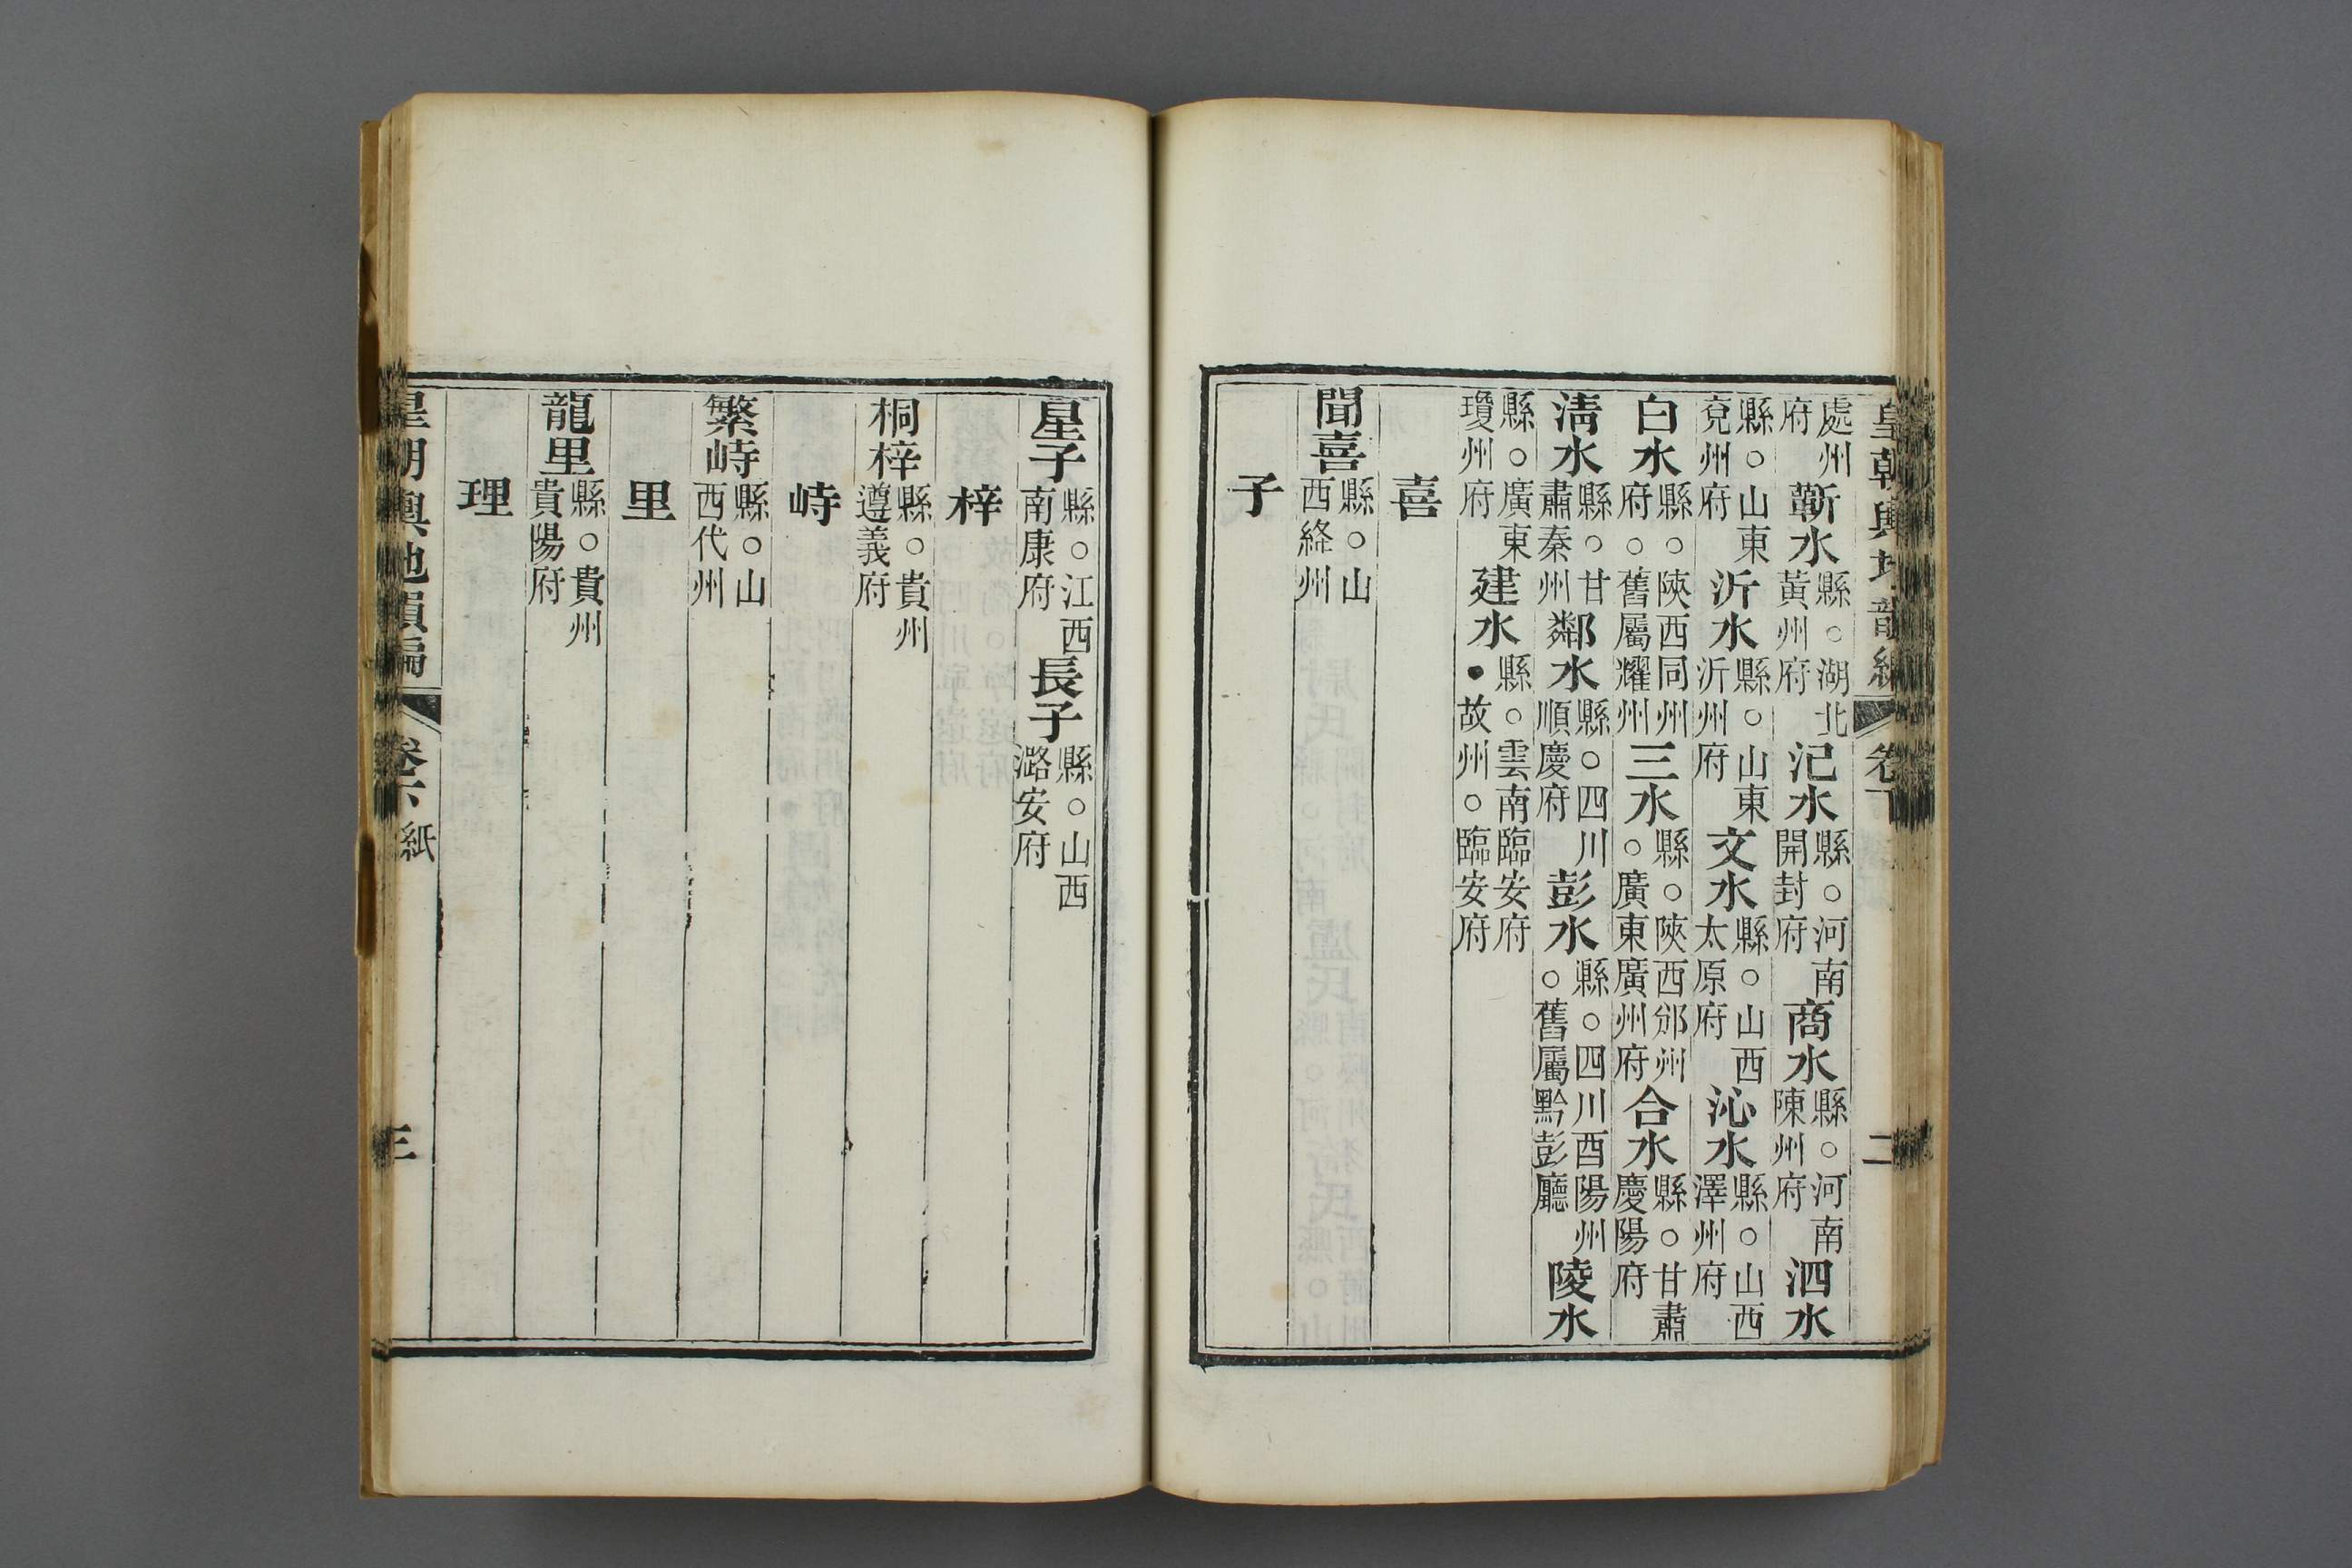 皇朝輿地韻編 卷下 二
處州府蘄水縣○湖北黃州府汜水縣○河南開封府商水縣○河南陳州府泗水
縣○山東兗州府沂水縣○山東沂州府文水縣○山西太原府沁水縣○山西澤州府
白水縣○陝西同州府○舊屬耀州三水縣○陝西邠州○廣東廣州府合水縣○甘肅慶陽府
淸水縣○甘肅秦州鄰水縣○四川順慶府彭水縣○四川酉陽州○舊屬黔彭廳陵水
縣○廣東瓊州府建水縣○雲南臨安府●故州○臨安府
喜
聞喜縣○山西絳州
子
星子縣○江西南康府長子縣○山西潞安府
梓
桐梓縣○貴州遵義府
峙
繁峙縣○山西代州
里
龍里縣○貴州貴陽府
理
皇朝輿地韻編 卷下 紙 三